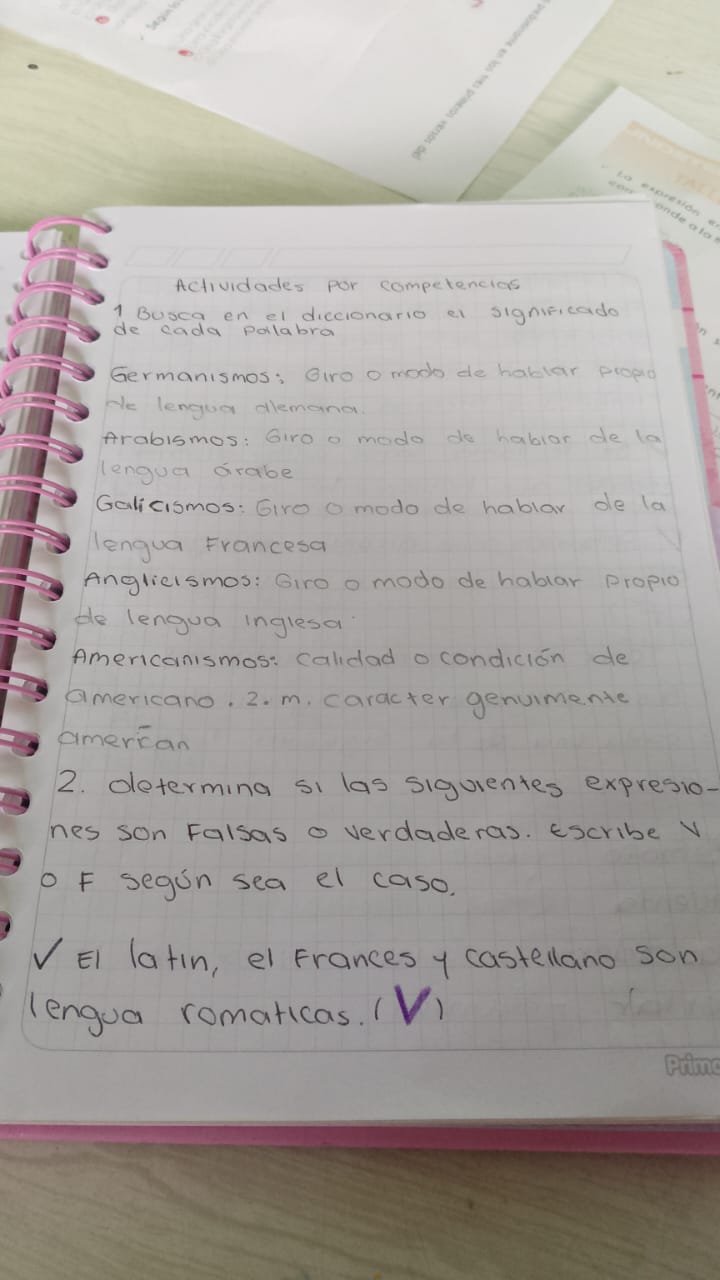 Según lo
primeros versos del
La expresión en
onde a la s
Actividades por competencias
1 Busca en el diccionario el significado
de cada palabra
Germanismos: Giro o modo de hablar propio
de lengua alemana.
Arabismos: Giro o modo de hablar de la
lengua árabe
Galicismos: Giro o modo de hablar de la
lengua Francesa
Anglicismos: Giro o modo de hablar propio
de lengua inglesa.
Americanismos: calidad o condición de
americano. 2. m. caracter genuimente
american
2. determina si las siguientes expresio-
nes son Falsas o verdaderas. Escribe V
o F según sea el caso.
✓ El latin, el Frances y castellano son
lengua romaticas. (V)
Prima